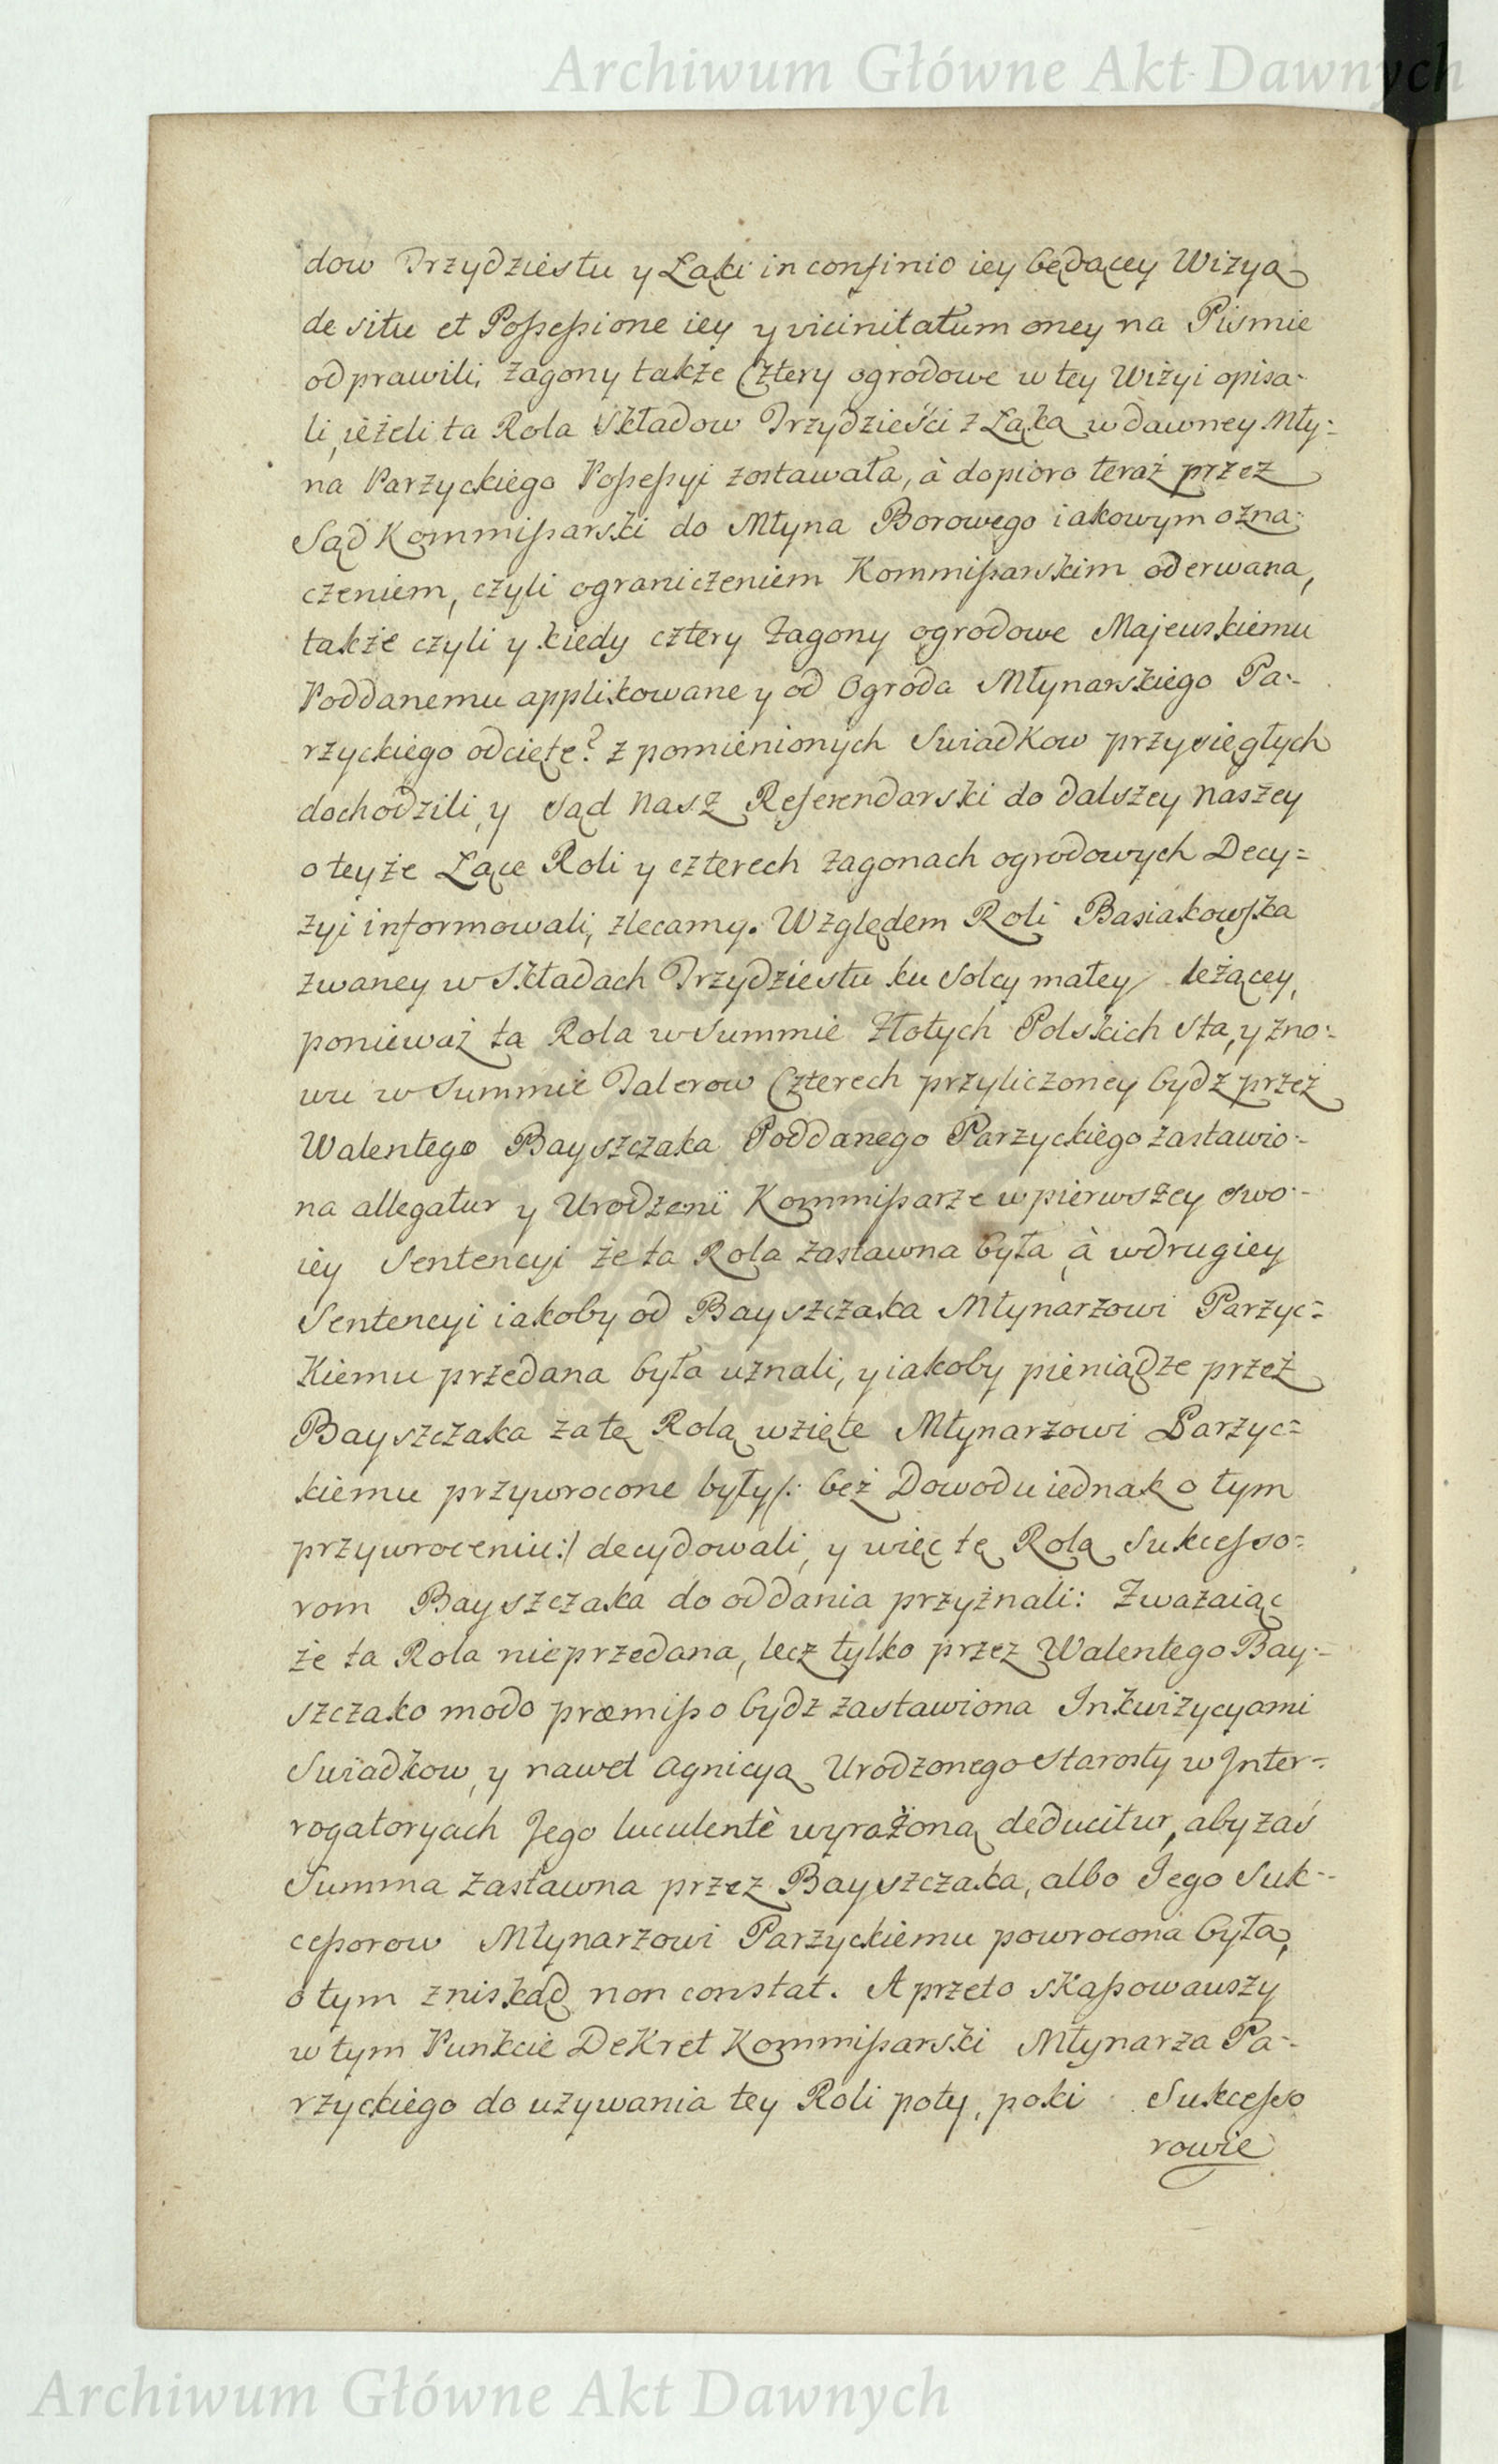 Archiwum Główne Akt Dawnych
dow Trzydziestu y Łąki in confinio iey będącey Wizyą
de situ et Possessione iey y vicinitatum oney na Pismie
odprawili, Zagony także Cztery ogrodowe w tey Wizyi opisa-
li, ieżeli ta Rola Składow Trzydzieści z Łąką w dawney Mły-
na Parzyckiego Possessyi zostawała, à dopioro teraz przez
Sąd Kommissarski do Młyna Borowego iakowym ozna-
czeniem, czyli ograniczeniem Kommissarskim oderwana,
także czyli y kiedy cztery Zagony ogrodowe Majewskiemu
Poddanemu applikowane y od Ogroda Młynarskiego Pa-
rzyckiego odcięte? z pomienionych Swiadkow przysięgłych
dochodzili, y Sąd Nasz Referendarski do dalszey naszey
o teyże Łące Roli y czterech Zagonach ogrodowych Decy=
zyi informowali, zlecamy. Względem Roli Basiakowska
zwaney w Składach Trzydziestu ku Solcy małey leżącey,
ponieważ ta Rola w Summie Złotych Polskich Sta, y zno-
wu w Summie Talerow Czterech przyliczoney bydz przez
Walentego Bayszczaka Poddanego Parzyckiego zastawio-
na allegatur y Urodzeni Kommissarze w pierwszey swo-
iey Sentencyi że ta Rola zastawna była, à w drugiey
Sentencyi iakoby od Bayszczaka Młynarzowi Parzyc=
kiemu przedana była uznali, y iakoby pieniądze przez
Bayszczaka za tę Rolą wzięte Młynarzowi Parzyc=
kiemu przywrocone były /: bez Dowodu iednak o tym
przywroceniu:/ decydowali, y więc tę Rolą Sukcesso-
rom Bayszczaka do oddania przyznali: Zważaiąc
że ta Rola nieprzedana, lecz tylko przez Walentego Bay-
szczako modo præmisso bydz zastawiona Inkwizycyami
Swiadkow, y nawet agnicyą Urodzonego Starosty w Inter-
rogatoryach Jego luculentè wyrażoną deducitur, aby zaś
Summa zastawna przez Bayszczaka, albo Jego Suk-
cessorow Młynarzowi Parzyckiemu powrocona była,
o tym zniskąd non constat. A przeto skassowawszy
w tym Punkcie Dekret Kommissarski Młynarza Pa-
rzyckiego do używania tey Roli poty, poki Sukcesso
rowie
Archiwum Główne Akt Dawnych